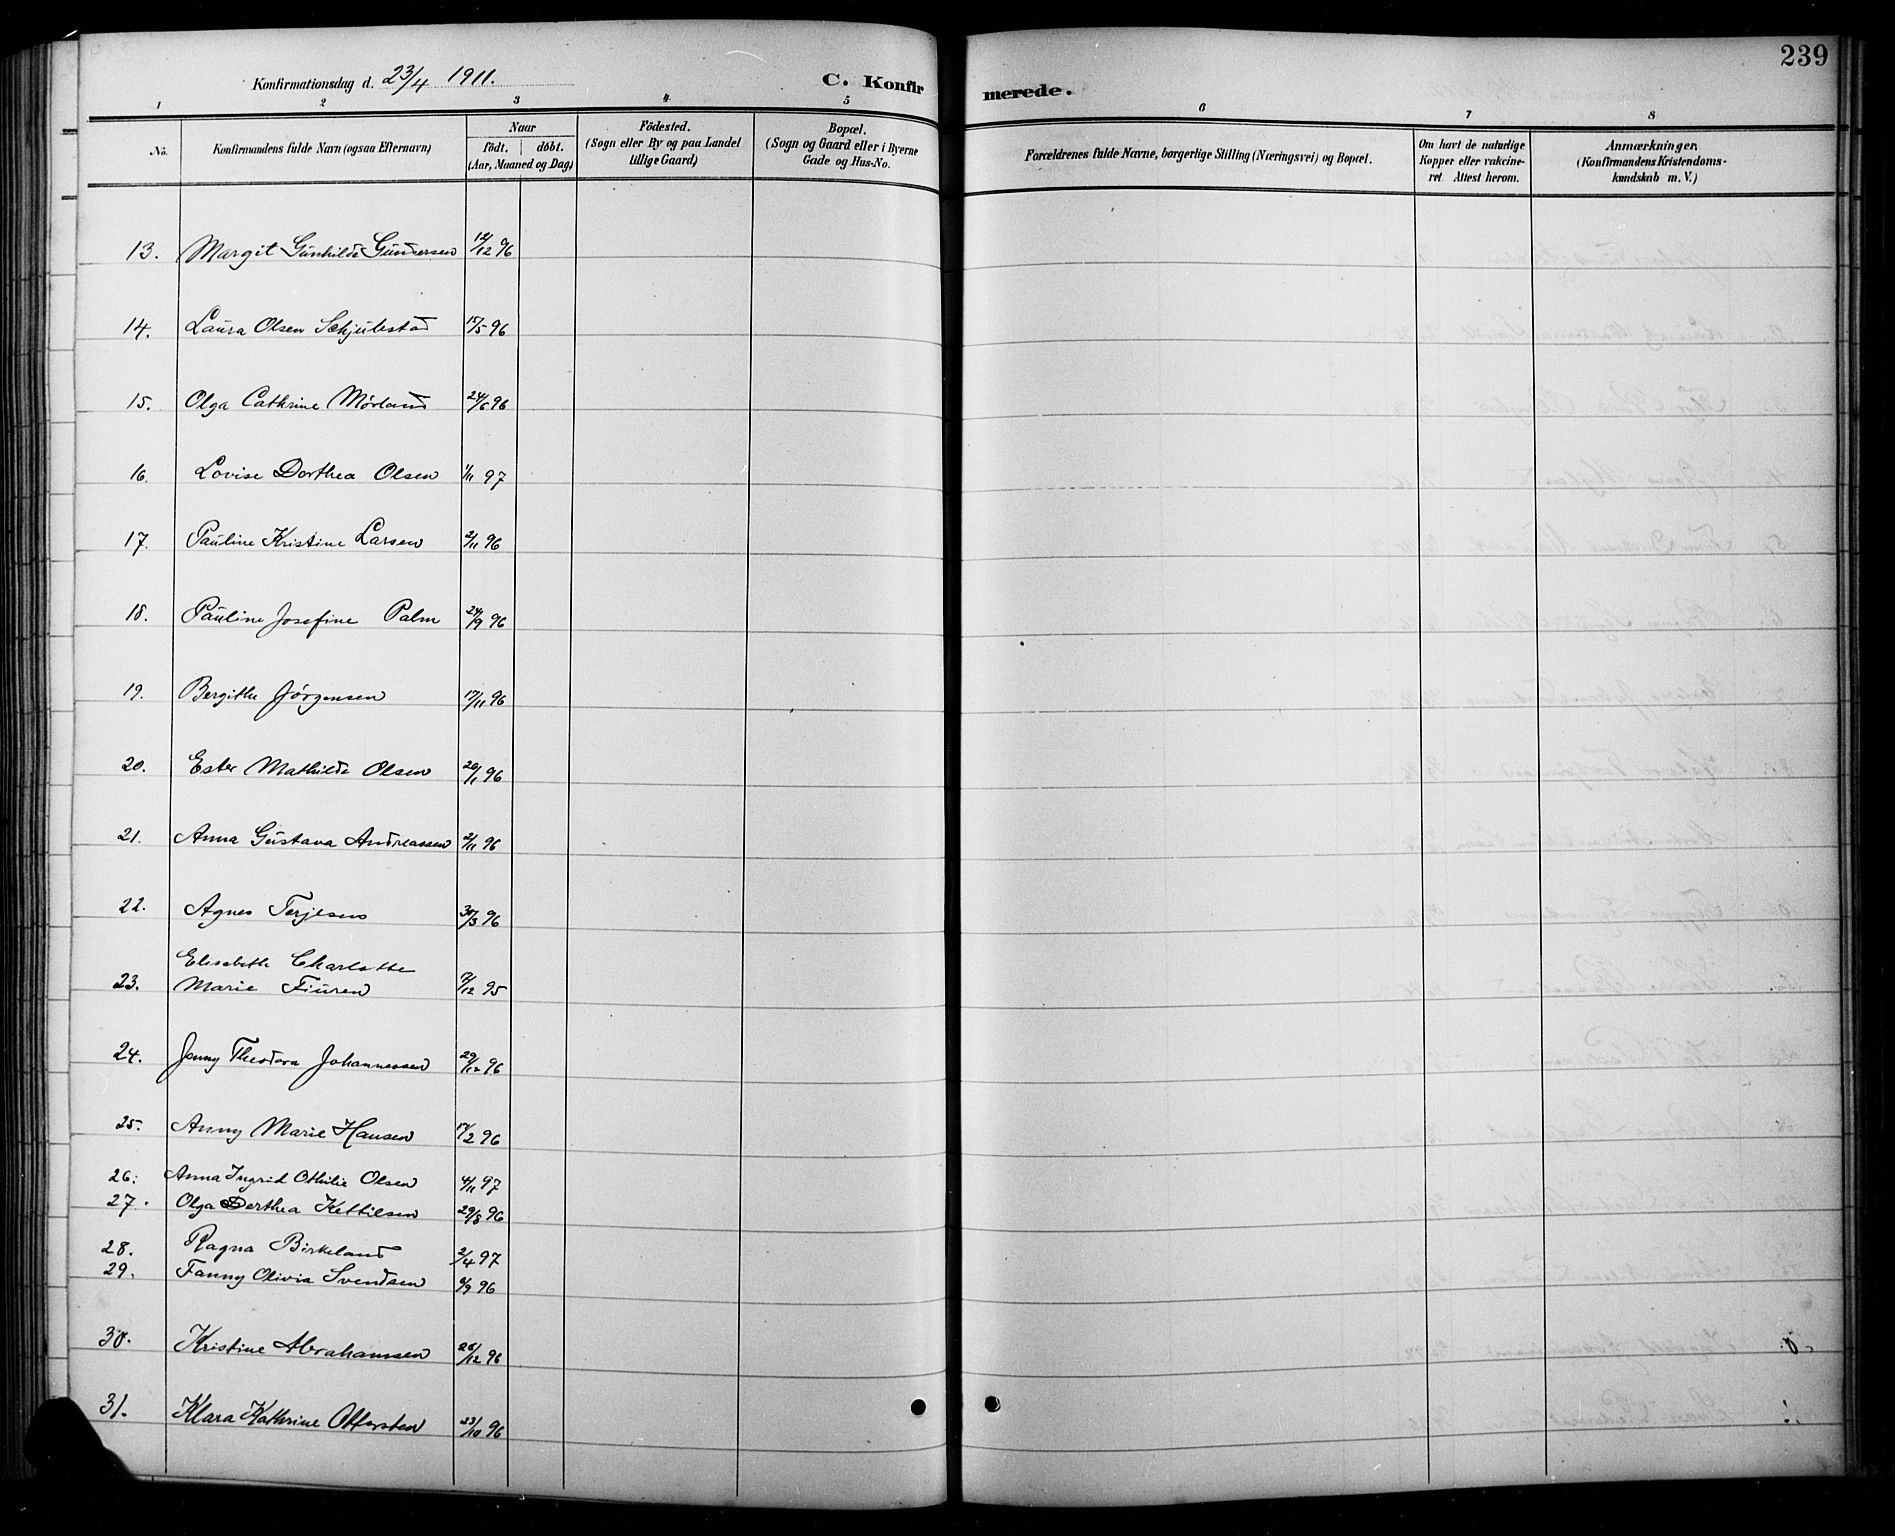 239
Konfirmationsdag d. 23/4 1911.
C. Konfirmerede.
1 2 3 4 5 6 7 8
No.
Konfirmandens fulde Navn (ogsaa Efternavn)
Naar
født. døbt.
(Aar, Maaned og Dag)
Födested.
(Sogn eller By og paa Landet
tillige Gaard)
Bopæl.
(Sogn og Gaard eller i Byerne
Gade og Hus-No.
Forældrenes fulde Navne, borgerlige Stilling (Næringsvei) og Bopæl.
Om havt de naturlige
Kopper eller vakcine-
ret. Attest herom.
Anmærkninger.
(Konfirmandens Kristendoms-
kundskab m. V.)
13. Margit Gunhilde Gundersen 12/12 96
14. Laura Olsen Schjulestad 15/5 96
15. Olga Cathrine Mørland 24/6 96
16. Lovise Dorthea Olsen 1/11 97
17. Pauline Kristine Larsen 2/11 96
18. Pauline Josefine Palm 24/9 96
19. Bergithe Jörgensen 17/11 96
20. Ester Mathilde Olsen 20/1 96
21. Anna Gustava Andreassen 2/11 96
22. Agnes Terjesen 30/3 96
Elisabeth Charlotte
23. Marie Fiuren 7/12 95
24. Jenny Theodora Johannessen 29/12 96
25. Anny Marie Hansen 17/2 96
26. Anna Ingrid Othilie Olsen 4/11 97
27. Olga Dorthea Kettilsen 29/8 96
28. Ragna Birkeland 2/4 97
29. Fanny Olivia Svendsen 6/9 96
30. Kristine Abrahamsen 26/12 96
31. Klara Kathrine Ottersten 23/10 96